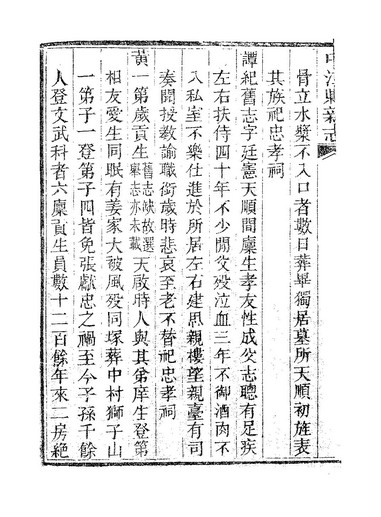 中江縣新志
骨立水漿不入口者數日葬畢獨居墓所天順初旌表
其族祀忠孝祠
譚紀舊志字廷憲天順間廩生孝友性成父志聰有足疾
左右扶侍四十年不少閒父歿泣血三年不御酒肉不
入私室不樂仕進於所居左右建思親樓望親臺有司
奏聞授教諭職銜歲時悲哀至老不替祀忠孝祠
黃一第歲貢生舊志缺故選舉志亦未載天啟時人與其弟庠生登第
相友愛生同眠有姜家大被風歿同塚葬中村獅子山
一第子一登第子四皆免張獻忠之禍至今子孫千餘
人登文武科者六廩貢生員數十二百餘年來二房絕